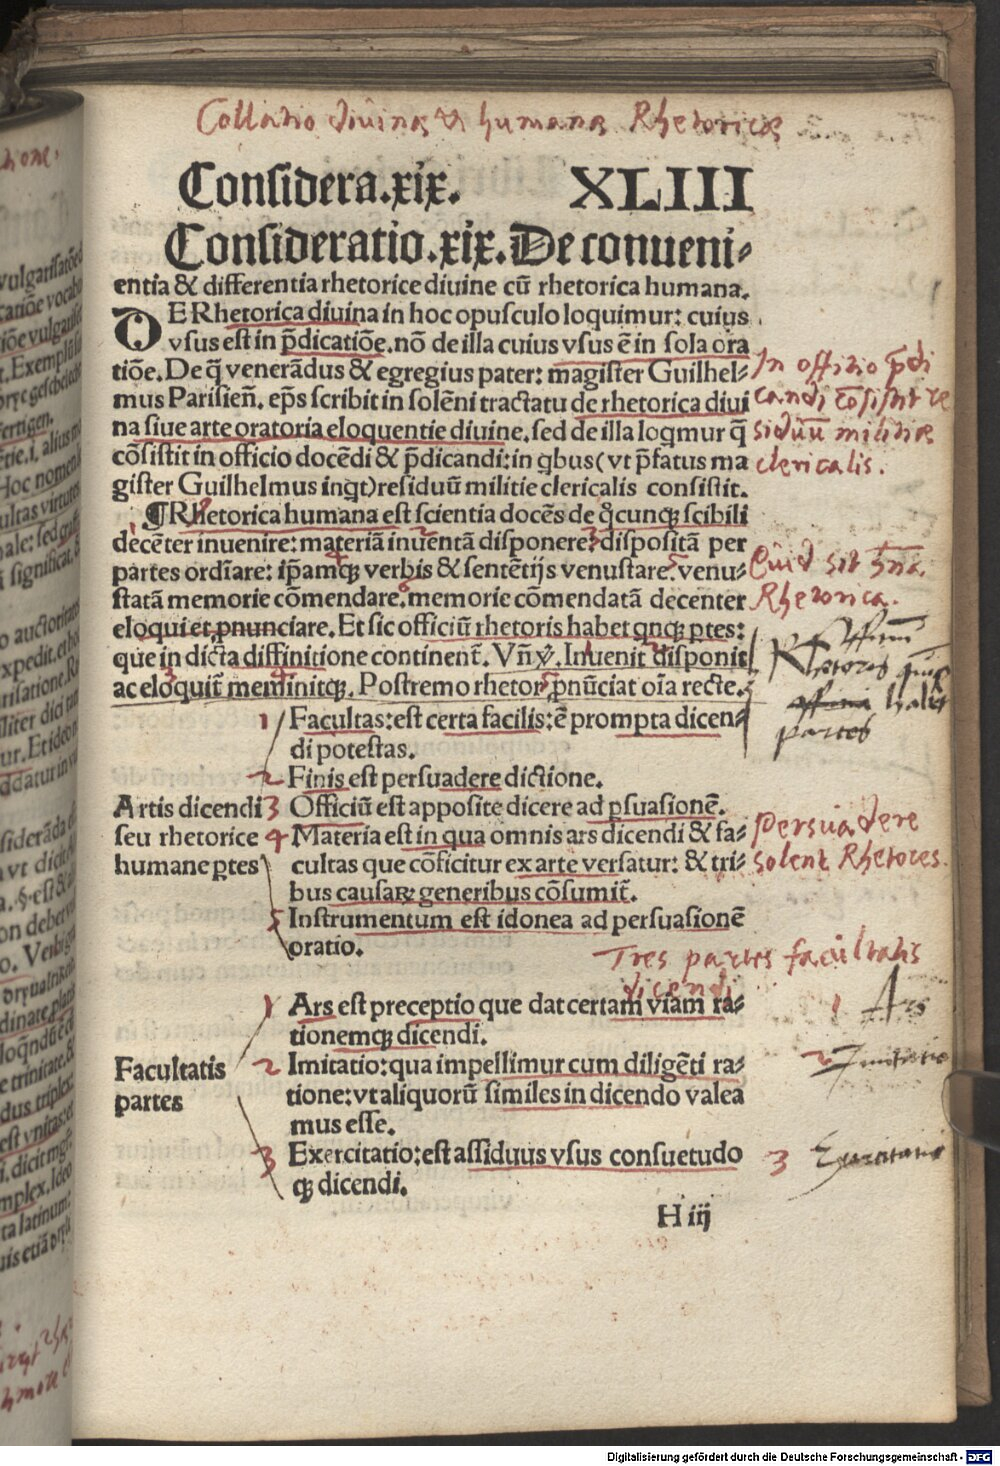 Collatio diuinae & humanae Rhetoricae
Considera.xix. XLIII
Consideratio.xix. De conueni-
entia & differentia rhetorice diuine cū rhetorica humana.
DE Rhetorica diuina in hoc opusculo loquimur: cuius
vsus est in p̄dicatiōe. nō de illa cuius vsus ē in sola ora
tiōe. De q̄ venerādus & egregius pater: magister Guilhel-
mus Parisieñ. ep̄s scribit in solēni tractatu de rhetorica diui
na siue arte oratoria eloquentie diuine. sed de illa loqmur q̄
cōsistit in officio docēdi & p̄dicandi: in qbus (vt p̄fatus ma
gister Guilhelmus inqt) residuū militie clericalis consistit.
In offitio p̄di
candi cōsistit re
siduū militiae
clericalis.
¶ Rhetorica humana est scientia docēs de q̊cunqꝫ scibili
decēter inuenire: materiā inuentā disponere: dispositā per
partes ordīare: ip̄amqꝫ verbis & sentētijs venustare. venu-
statā memorie cōmendare. memorie cōmendatā decenter
eloqui et pnunciare. Et sic officiū rhetoris habet qnqꝫ ptes:
que in dicta diffinitione continent᷑. Vñ ꝟ. Inuenit disponit
ac eloquit᷑ meminitqꝫ. Postremo rhetor pnūciat oīa recte.
Quid sit hūa
Rhetorica.
Offitium
Rhetoris
habet
partes
Artis dicendi
seu rhetorice
humane ꝑtes
1 Facultas: est certa facilis: ē prompta dicen-
di potestas.
2 Finis est persuadere dictione.
3 Officiū est apposite dicere ad ꝑsuasionē.
4 Materia est in qua omnis ars dicendi & fa-
cultas que cōficitur ex arte versatur: & tri-
bus causaꝝ generibus cōsumit᷑.
5 Instrumentum est idonea ad persuasionē
oratio.
Persuadere
solent Rhetores.
Tres partes facultatis
dicendi
Facultatis
partes
1 Ars est preceptio que dat certam viam ra-
tionemqꝫ dicendi.
2 Imitatio: qua impellimur cum diligēti ra-
tione: vt aliquorū similes in dicendo valea
mus esse.
3 Exercitatio: est assiduus vsus consuetudo
qꝫ dicendi.
1 Ars
2 Imitatio
3 Exercitatio
H iij
Digitalisierung gefördert durch die Deutsche Forschungsgemeinschaft - DFG